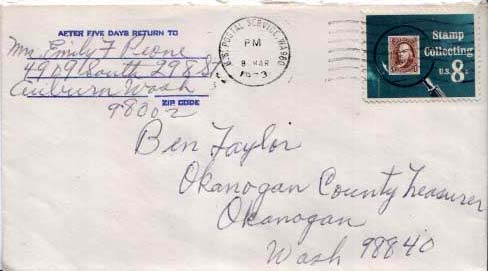 AFTER FIVE DAYS RETURN TO
Mrs Emily F Peone
4909 South 298 St
Auburn Wash
98002
ZIP CODE
U.S. POSTAL SERVICE, WA 980
PM
8 MAR
1973
Stamp
Collecting
U.S. 8c
Ben Taylor
Okanogan County Treasurer
Okanogan
Wash 98840